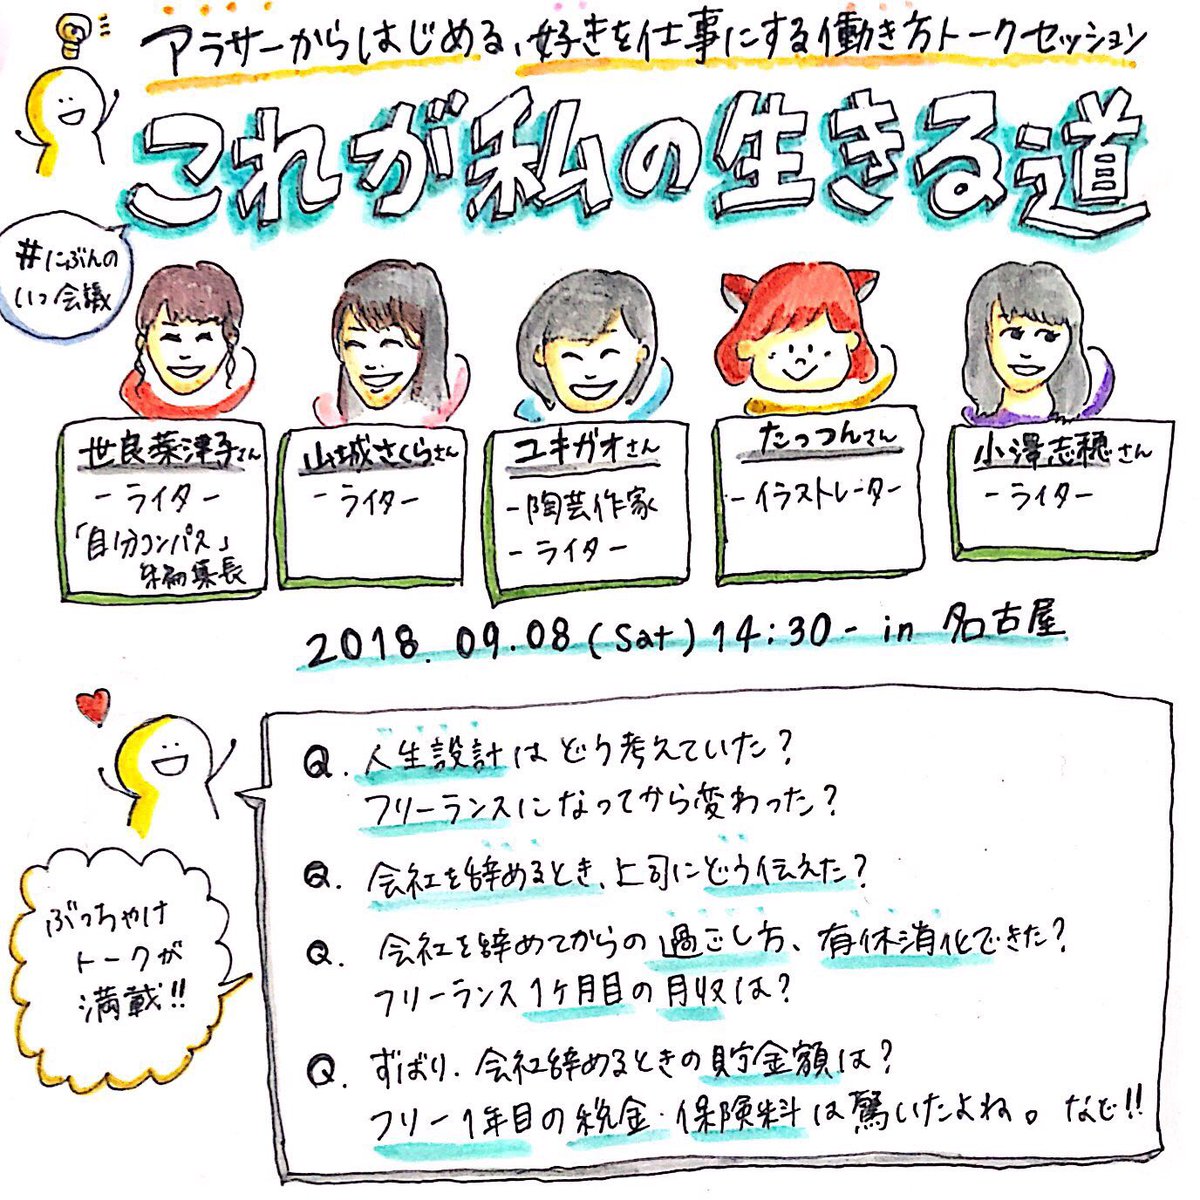 アラサーからはじめる、好きを仕事にする働き方トークセッション
これが私の生きる道
#にぶんの
いつ会議
世良菜津子さん
－ライター
「自分コンパス」
編集長
山城さくらさん
－ライター
ユキガオさん
－陶芸作家
－ライター
たっつんさん
－イラストレーター
小澤志穂さん
－ライター
2018. 09.08 (Sat) 14:30- in 名古屋
Q. 人生設計はどう考えていた?
フリーランスになってから変わった?
Q. 会社を辞めるとき、上司にどう伝えた?
Q. 会社を辞めてからの過ごし方、有休消化できた?
フリーランス1ヶ月目の月収は?
Q. ずばり、会社辞めるときの貯金額は?
フリー1年目の税金・保険料は驚いたよね。など!!
ぶっちゃけ
トークが
満載!!